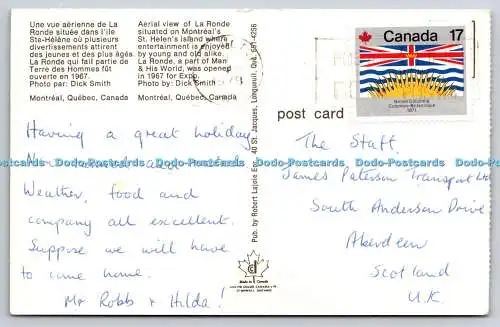 Une vue aérienne de La
Ronde située dans l'île
Ste-Hélène où plusieurs
divertissements attirent
des jeunes et des plus âgés.
La Ronde qui fait partie de
Terre des Hommes fût
ouverte en 1967.
Photo par: Dick Smith
Montréal, Québec, Canada
Aerial view of La Ronde
situated on Montréal's
St. Helen's Island where
entertainment is enjoyed
by young and old alike.
La Ronde, a part of Man
& His World, was opened
in 1967 for Expo.
Photo by: Dick Smith
Montréal, Québec, Canada
Canada 17
British Columbia
Colombie-Britannique
1871
post card
Pub. by Robert Lajoie Enr., 40 St. Jacques, Longueuil, Qué. 681-4256
Having a great holiday
Weather, food and
company all excellent.
Suppose we will have
to come home.
Mr Robbs & Hilda!
The Staff,
James Paterson Transport Ltd
South Anderson Drive
Aberdeen
Scotland
U.K.
Made in Canada
Dodo-Postcards Dodo-Postcards Dodo-Postcards Dodo-Postcards